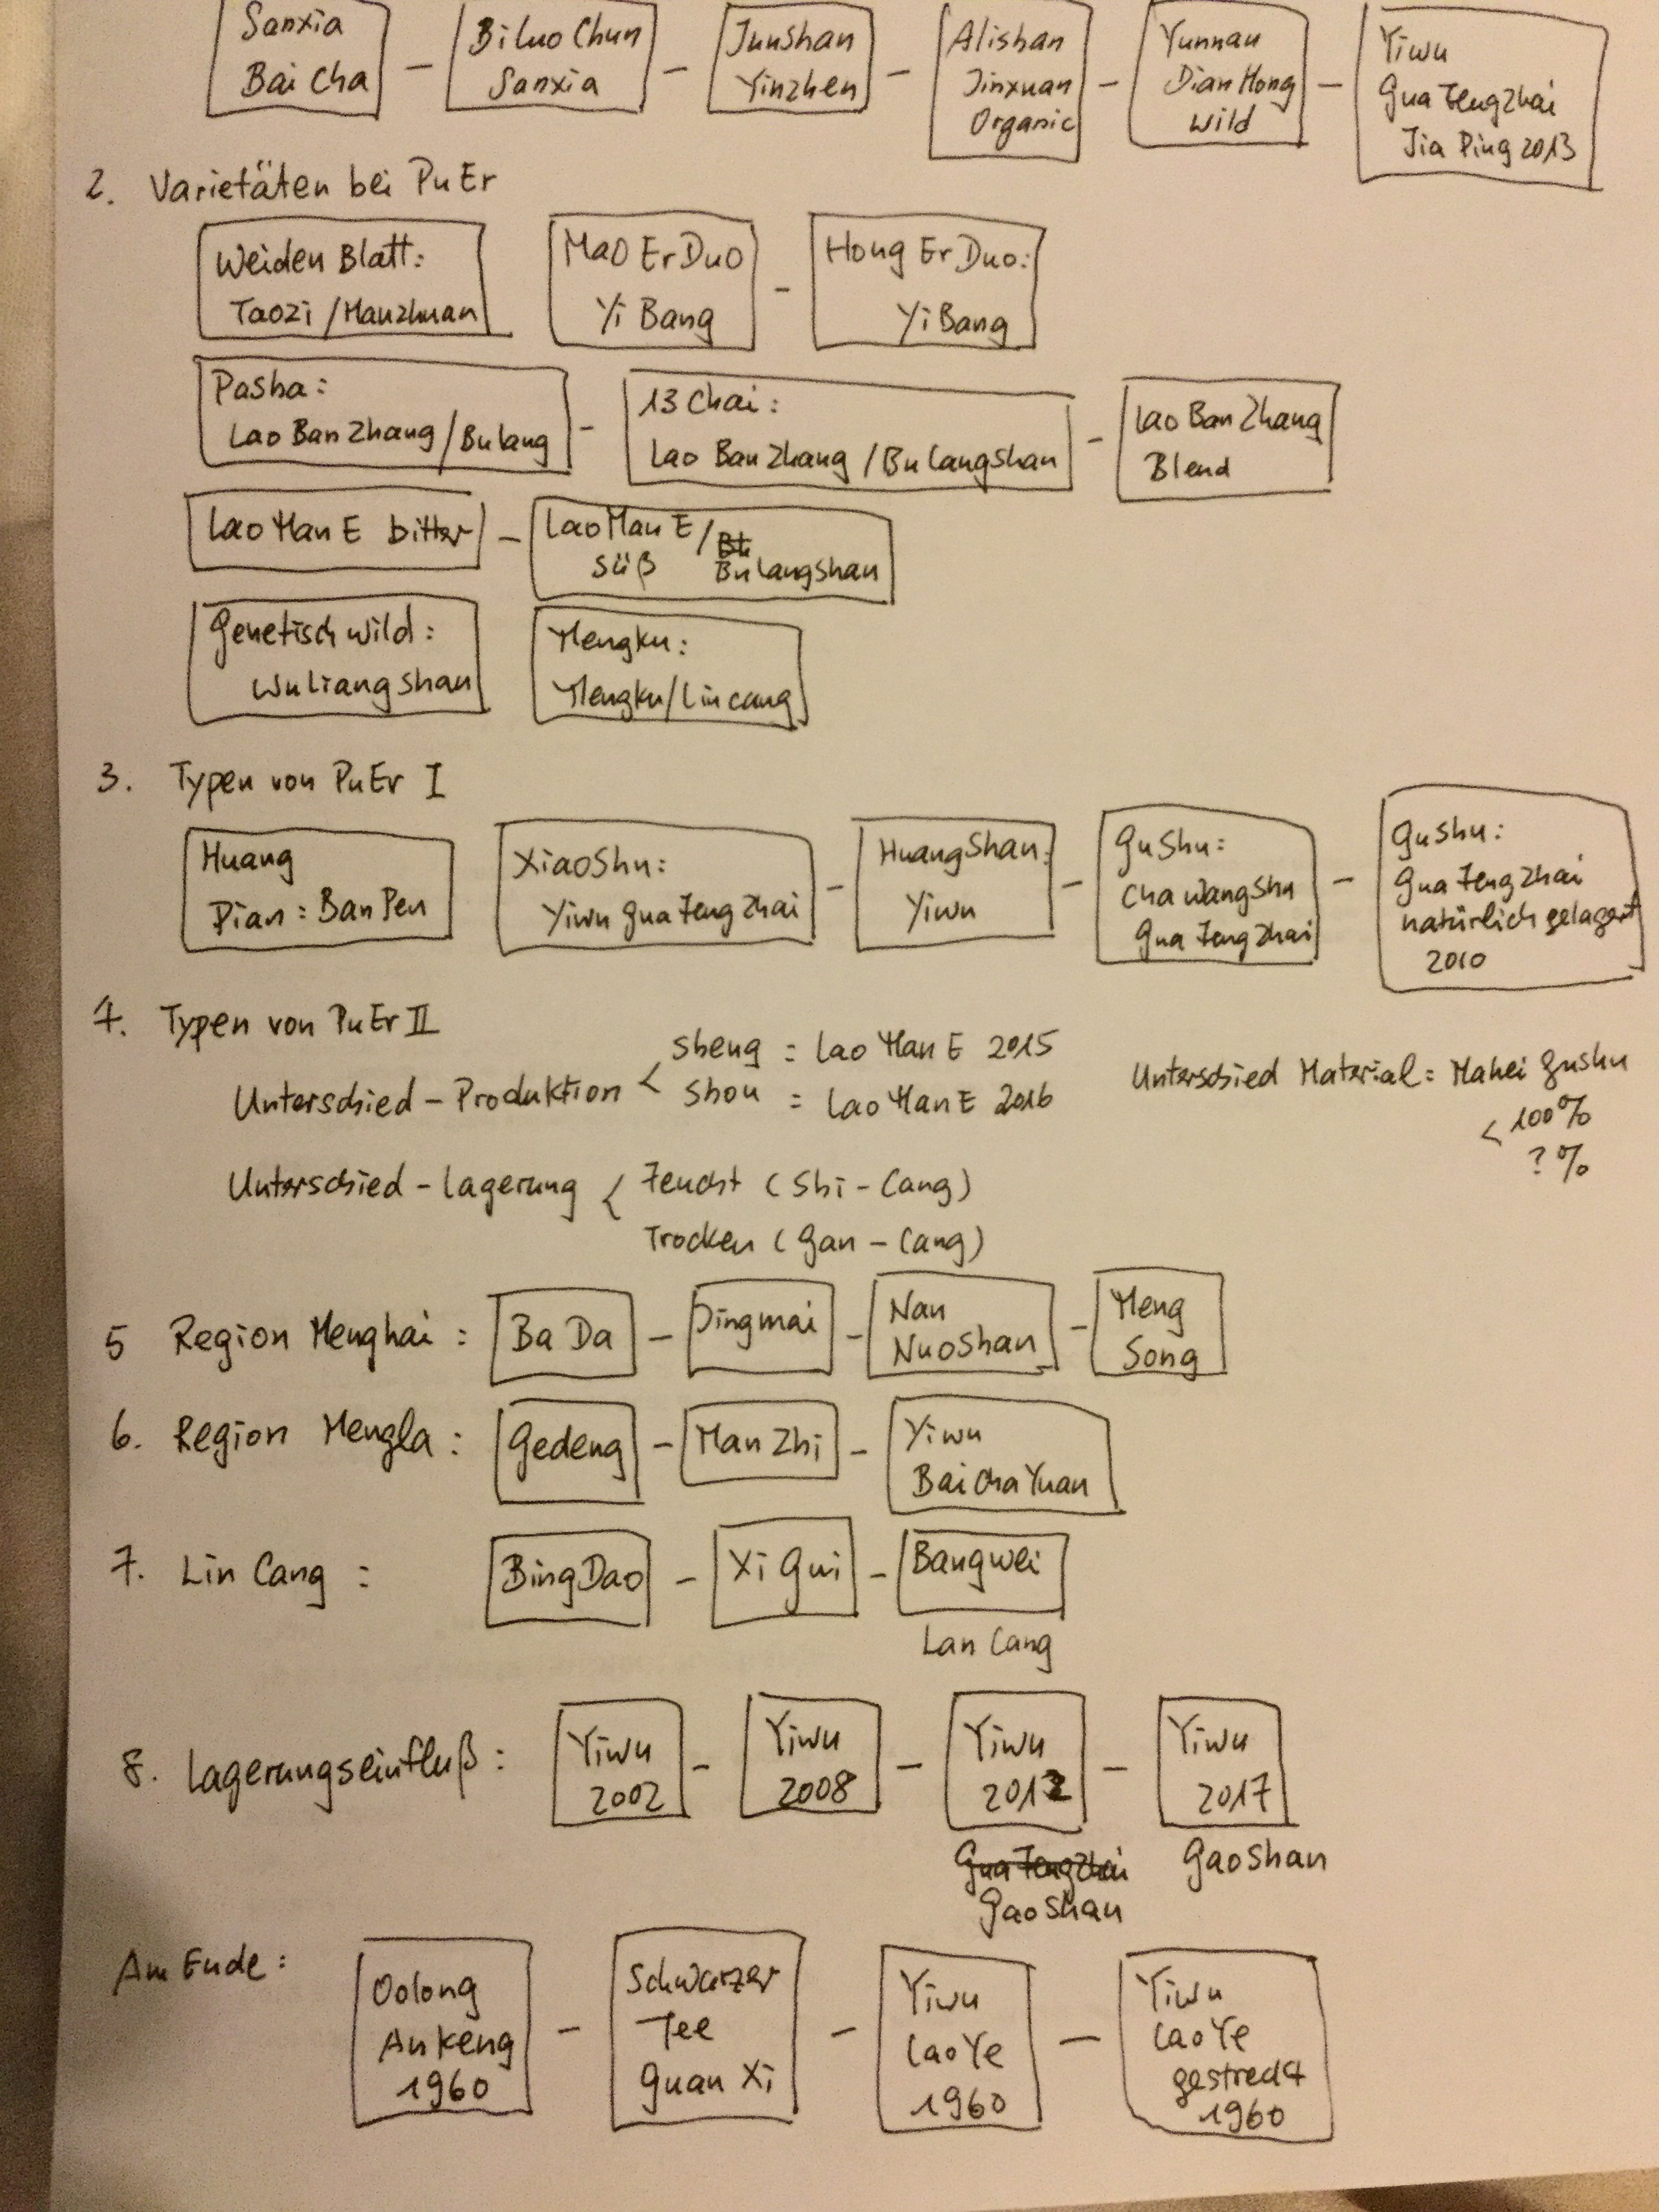 Sanxia
Bai Cha
BiLuo Chun
Sanxia
JunShan
Yinzhen
Alishan
Jinxuan
Organic
Yunnan
Dian Hong
wild
Yiwu
GuaFengZhai
Jia Ping 2013
2. Varietäten bei PuEr
Weiden Blatt:
Taozi / Manzhuan
Mao ErDuo
Yi Bang
Hong Er Duo:
Yi Bang
Pasha:
Lao Ban Zhang / Bulang
13 Chai:
Lao Ban Zhang / BuLangshan
Lao Ban Zhang
Blend
Lao Man E bitter
Lao Man E /
süß BuLangshan
Genetisch wild:
WuLiangshan
Mengku:
Mengku/Lincang
3. Typen von PuEr I
Huang
Pian: BanPen
XiaoShu:
Yiwu GuaFengZhai
HuangShan:
Yiwu
GuShu:
Chawangshu
GuaFengZhai
GuShu:
GuaFengZhai
natürlich gelagert
2010
4. Typen von PuEr II
Unterschied - Produktion <
Sheng = Lao Man E 2015
Shou = Lao Man E 2016
Unterschied Material = Mahei Gushu
< 100%
? %
Unterschied - Lagerung <
Feucht (Shi - Cang)
Trocken (Gan - Cang)
5 Region Menghai: Ba Da - Jingmai - Nan
NuoShan - Meng
Song
6. Region Mengla: Gedeng - Man Zhi - Yiwu
BaiChaYuan
7. Lin Cang: BingDao - Xi Gui - Bangwei
Lan Cang
8. Lagerungseinfluß: Yiwu
2002
Yiwu
2008
Yiwu
2012
Yiwu
2017
GuaFengZhai
GaoShan
GaoShan
Am Ende:
Oolong
AnKeng
1960
Schwarzer
Tee
Guan Xi
Yiwu
LaoYe
1960
Yiwu
LaoYe
gestreckt
1960